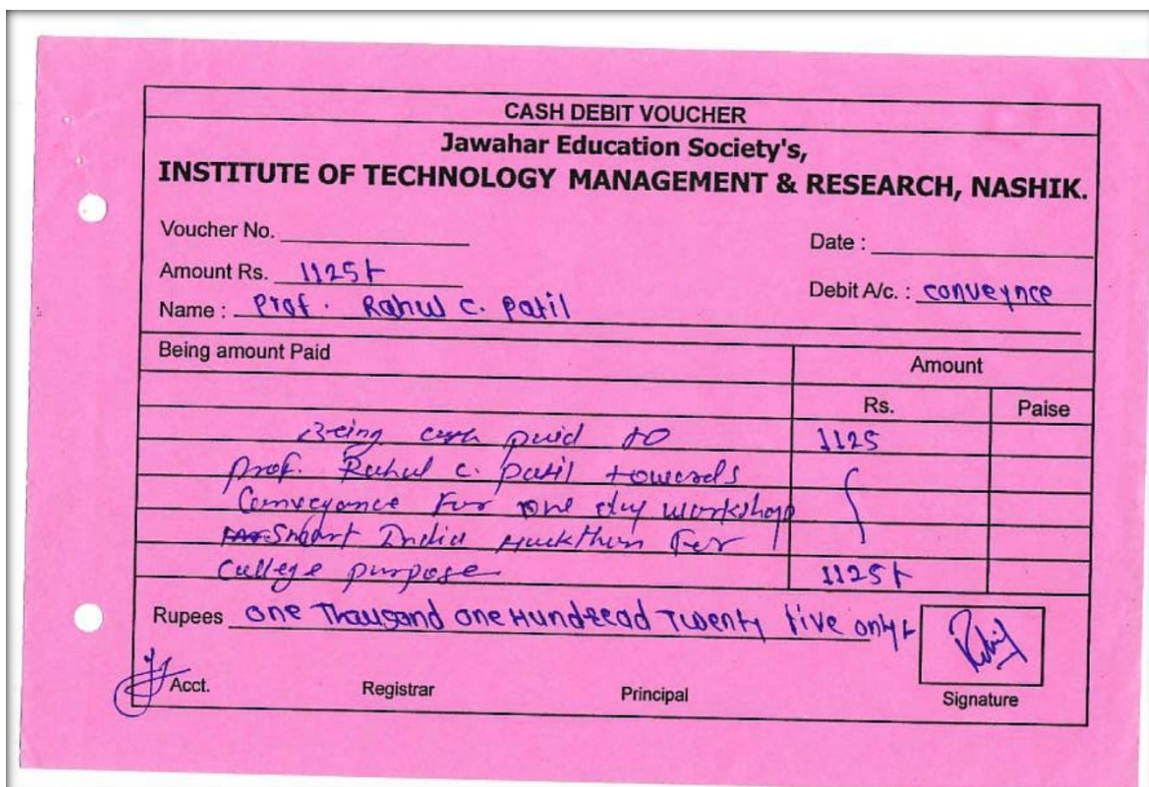 CASH DEBIT VOUCHER
Jawahar Education Society's,
INSTITUTE OF TECHNOLOGY MANAGEMENT & RESEARCH, NASHIK.
Voucher No.
Date :
Amount Rs. 1125/-
Debit A/c. : conveynce
Name : Prof. Rahul C. Patil
Being amount Paid Amount
Rs. Paise
Being cash paid to 1125
Prof. Rahul C. Patil towards
Conveyance For one day workshop
Smart India Hackthon For
College purpose 1125/-
Rupees one Thousand one Hundread Twenty five only/-
Acct. Registrar Principal Signature